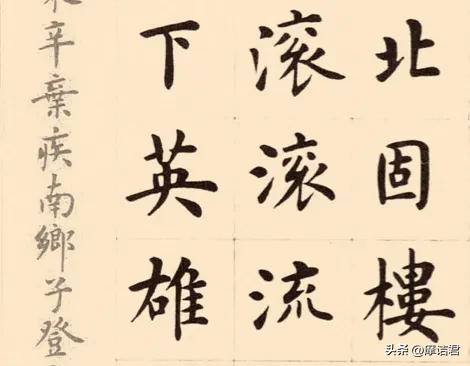 北固樓
滚滚流
下英雄
辛棄疾南鄉子登
头条 @摩诘君